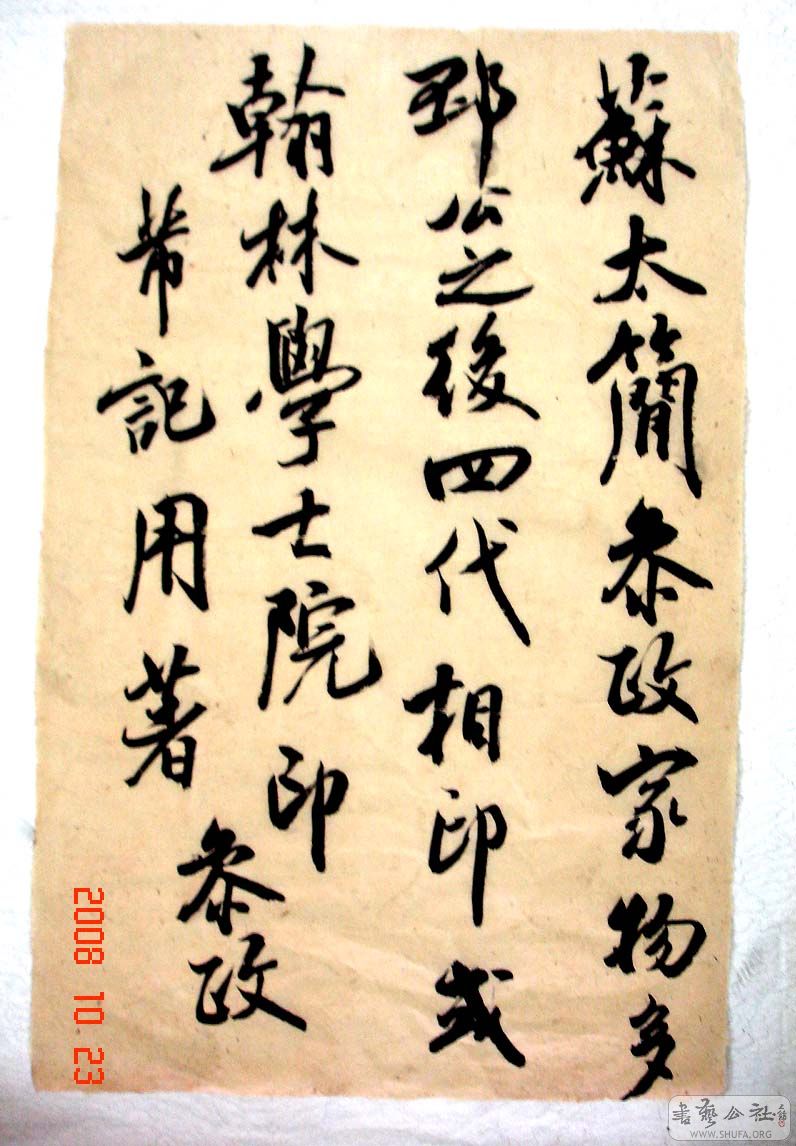 蘇太簡參政家物多
邳公之後四代相印或
翰林學士院印
參政
芾記用著
2008 10 23
書藝公社
WWW.SHUFA.ORG